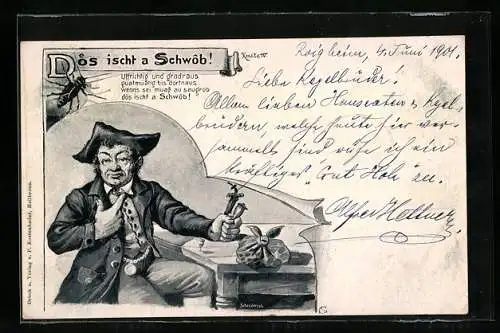 Dös ischt a Schwôb!
Uffrichtig und gradraus
guatmüatig bis dortnaus
wenns sei muaß au saugrob
dös ischt a Schwôb!
4. Juni 1901.
Liebe Kegelbrüder!
Allen lieben &
brüdern, welche heute hier ver-
sammelt sind rufe ich ein
kräftiges "Gut Holz" zu.
Alfred
Druck u. Verlag v. F. Rostenbader, Heilbronn.